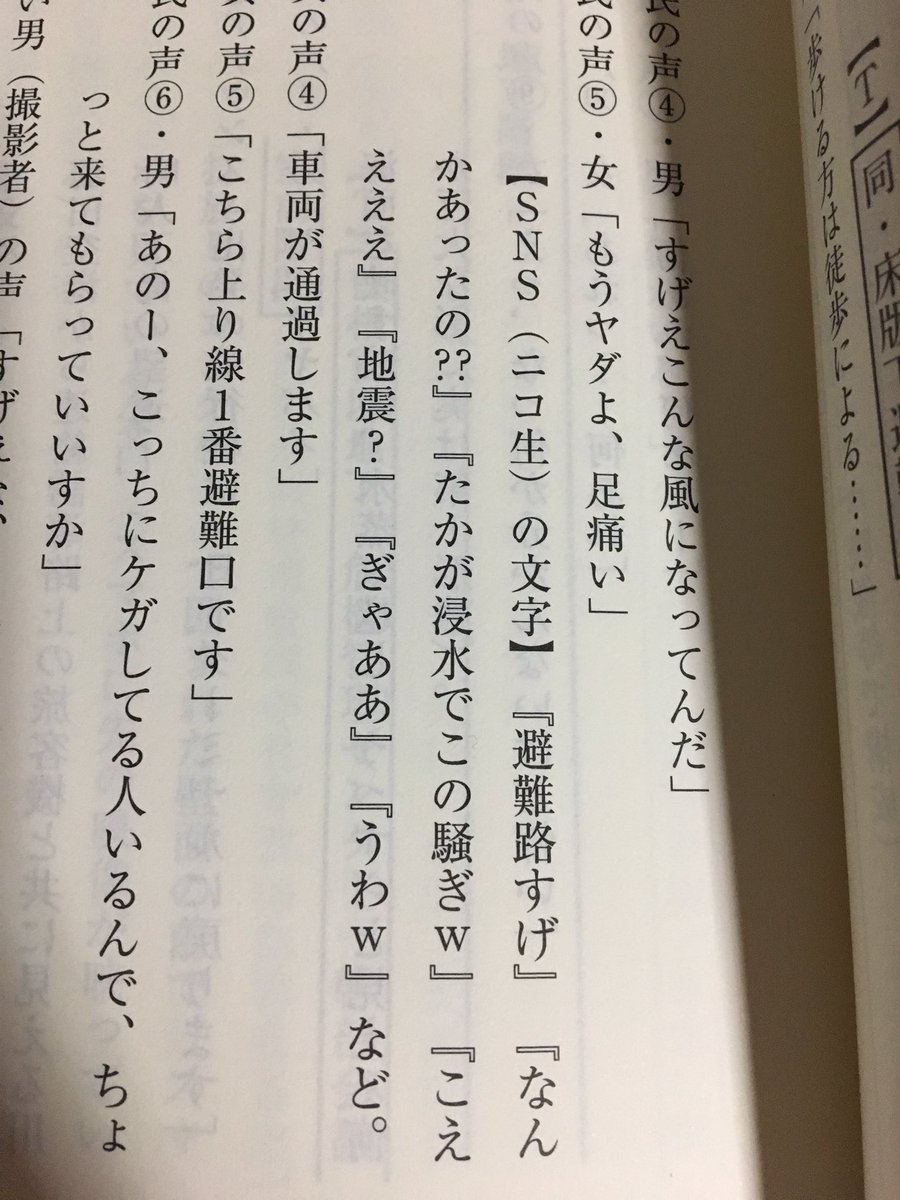 「歩ける方は徒歩による……」
氏の声④・男「すげえこんな風になってんだ」
氏の声⑤・女「もうヤダよ、足痛い」
【SNS（ニコ生）の文字】『避難路すげ』『なん
かあったの??』『たかが浸水でこの騒ぎw』『こえ
えええ』『地震?』『ぎゃああ』『うわw』など。
の声④「車両が通過します」
の声⑤「こちら上り線1番避難口です」
氏の声⑥・男「あのー、こっちにケガしてる人いるんで、ちょ
っと来てもらっていいすか」
い男（撮影者）の声「すげえな、